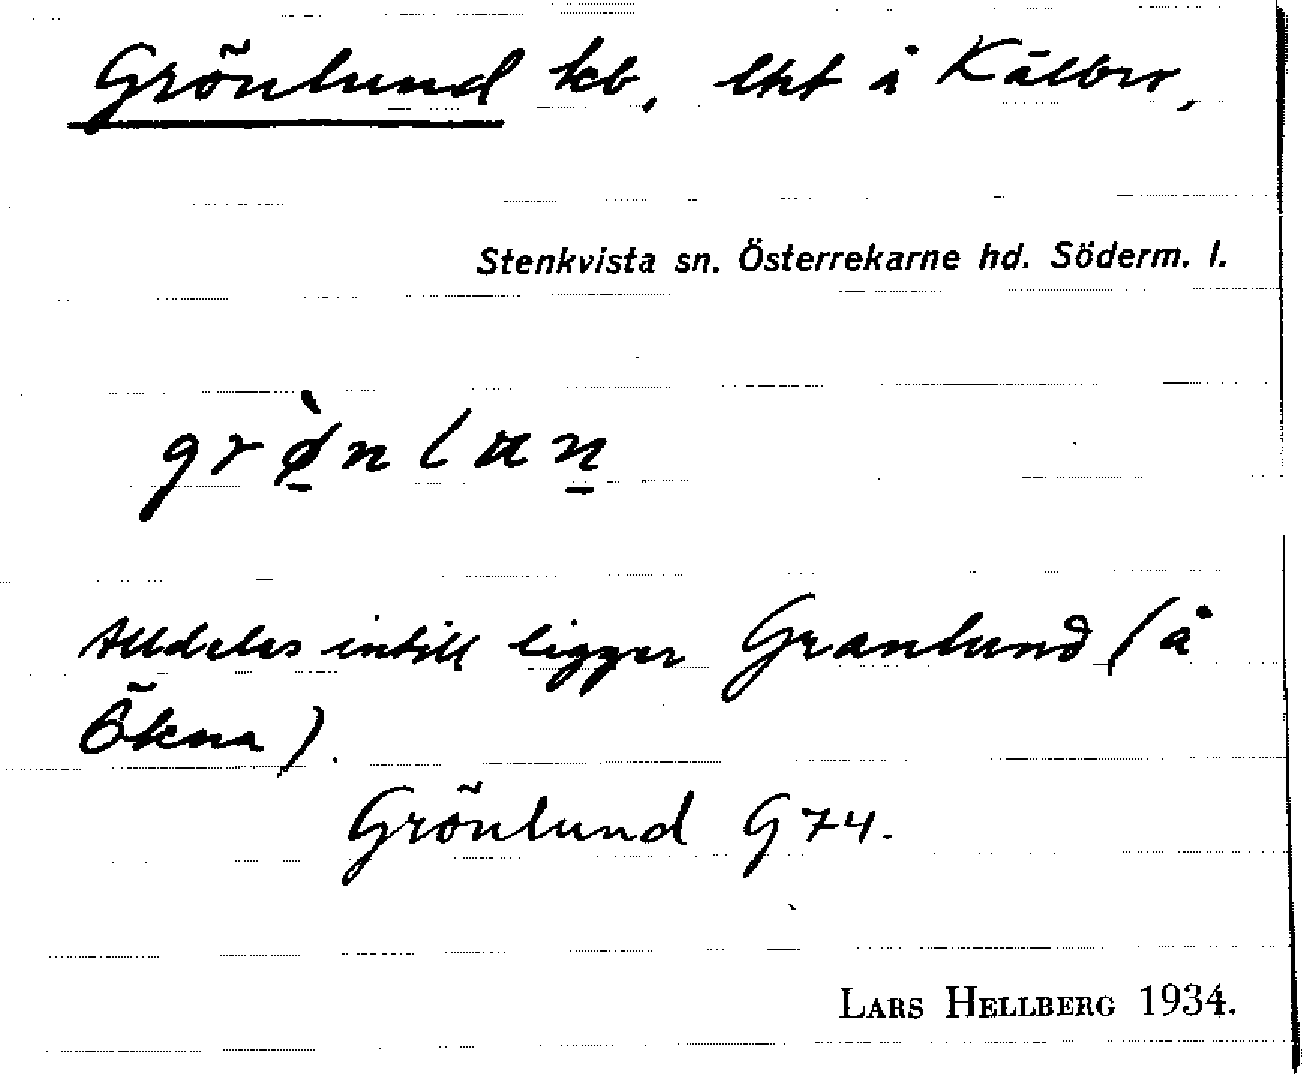 Grönlund kb, lht å Kälbro,
Stenkvista sn. Österrekarne hd. Söderm. l.
grø̀nlun
Alldeles intill ligger Granlund (å
Ökna).
Grönlund G 74.
LARS HELLBERG 1934.